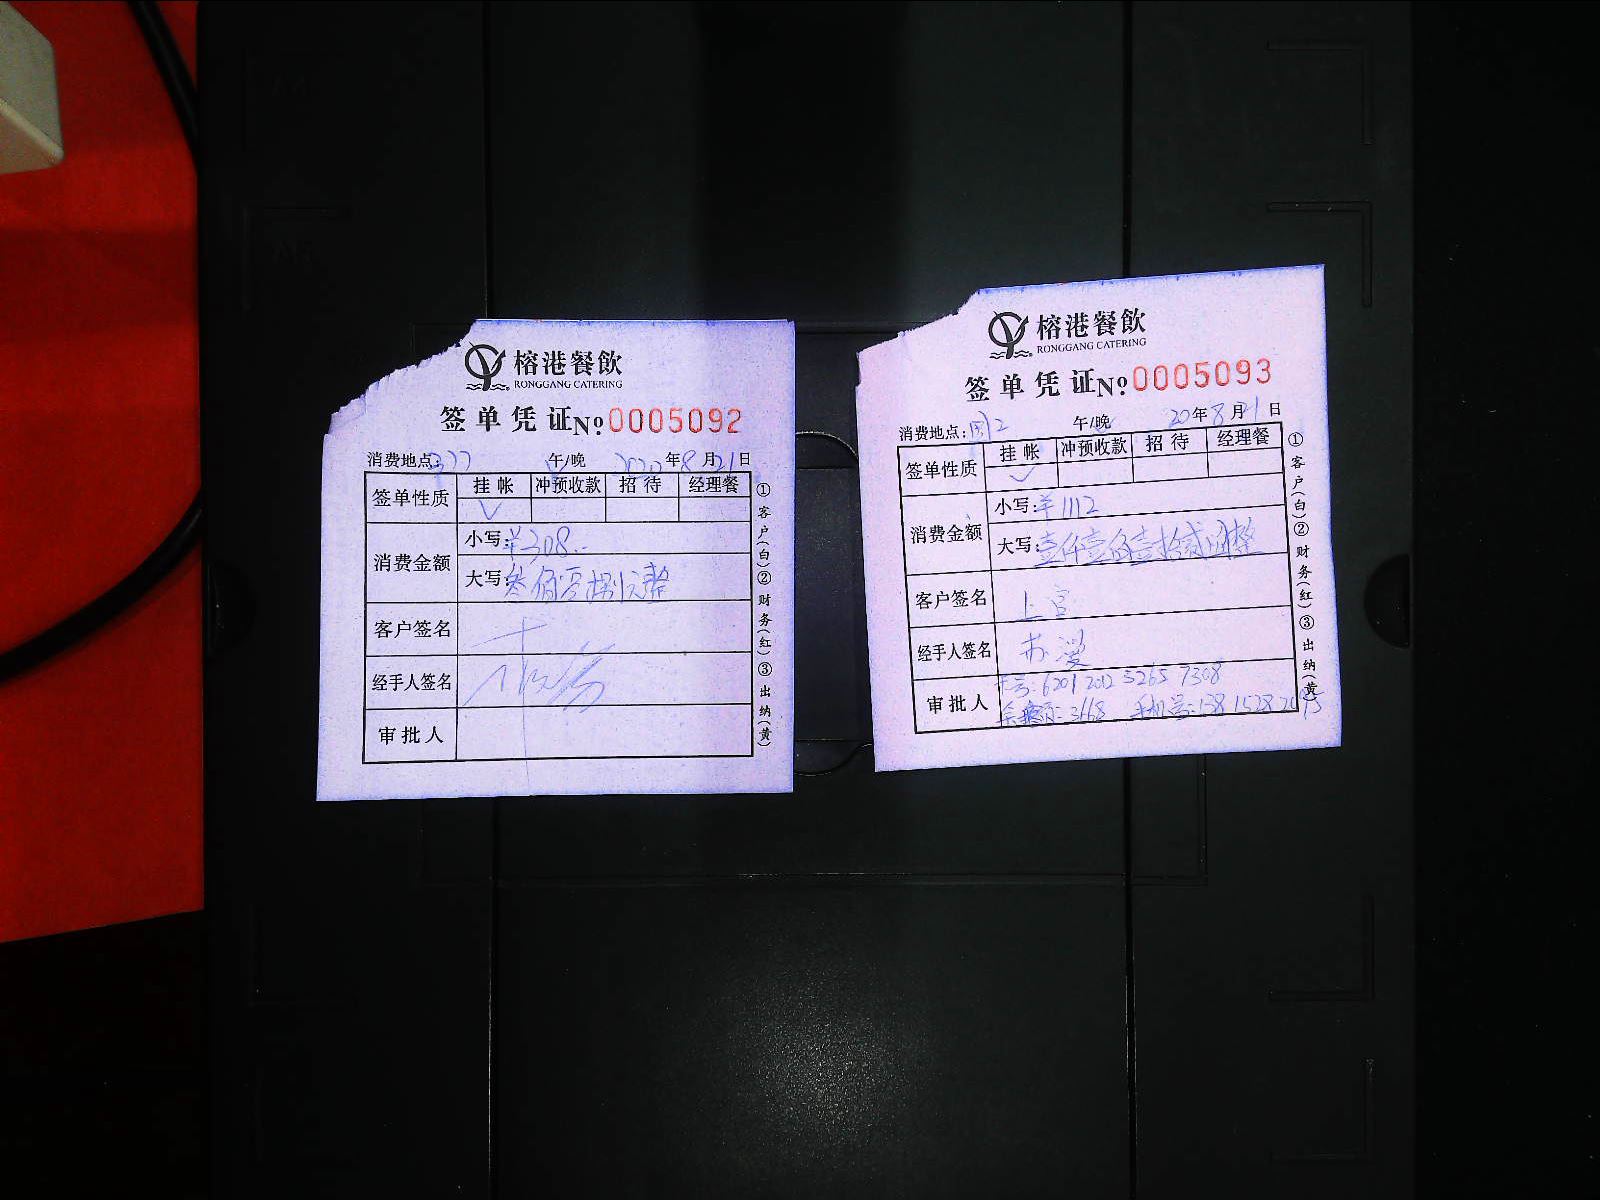 榕港餐飲
RONGGANG CATERING
签单凭证 No. 0005092
消费地点: 午/晚 2020年8月21日
签单性质 挂帐 冲预收款 招待 经理餐
✓
消费金额 小写:¥308
大写:叁佰零捌元整
客户签名
经手人签名
审批人
①客户(白)②财务(红)③出纳(黄)
榕港餐飲
RONGGANG CATERING
签单凭证 No. 0005093
消费地点: 午/晚 20年8月21日
签单性质 挂帐 冲预收款 招待 经理餐
✓
消费金额 小写:¥1112
大写:壹仟壹佰壹拾贰圆整
客户签名 上官
经手人签名 苏
卡号:6201 2012 5265 7308
审批人 余额:3668 手机号:138 1528
①客户(白)②财务(红)③出纳(黄)